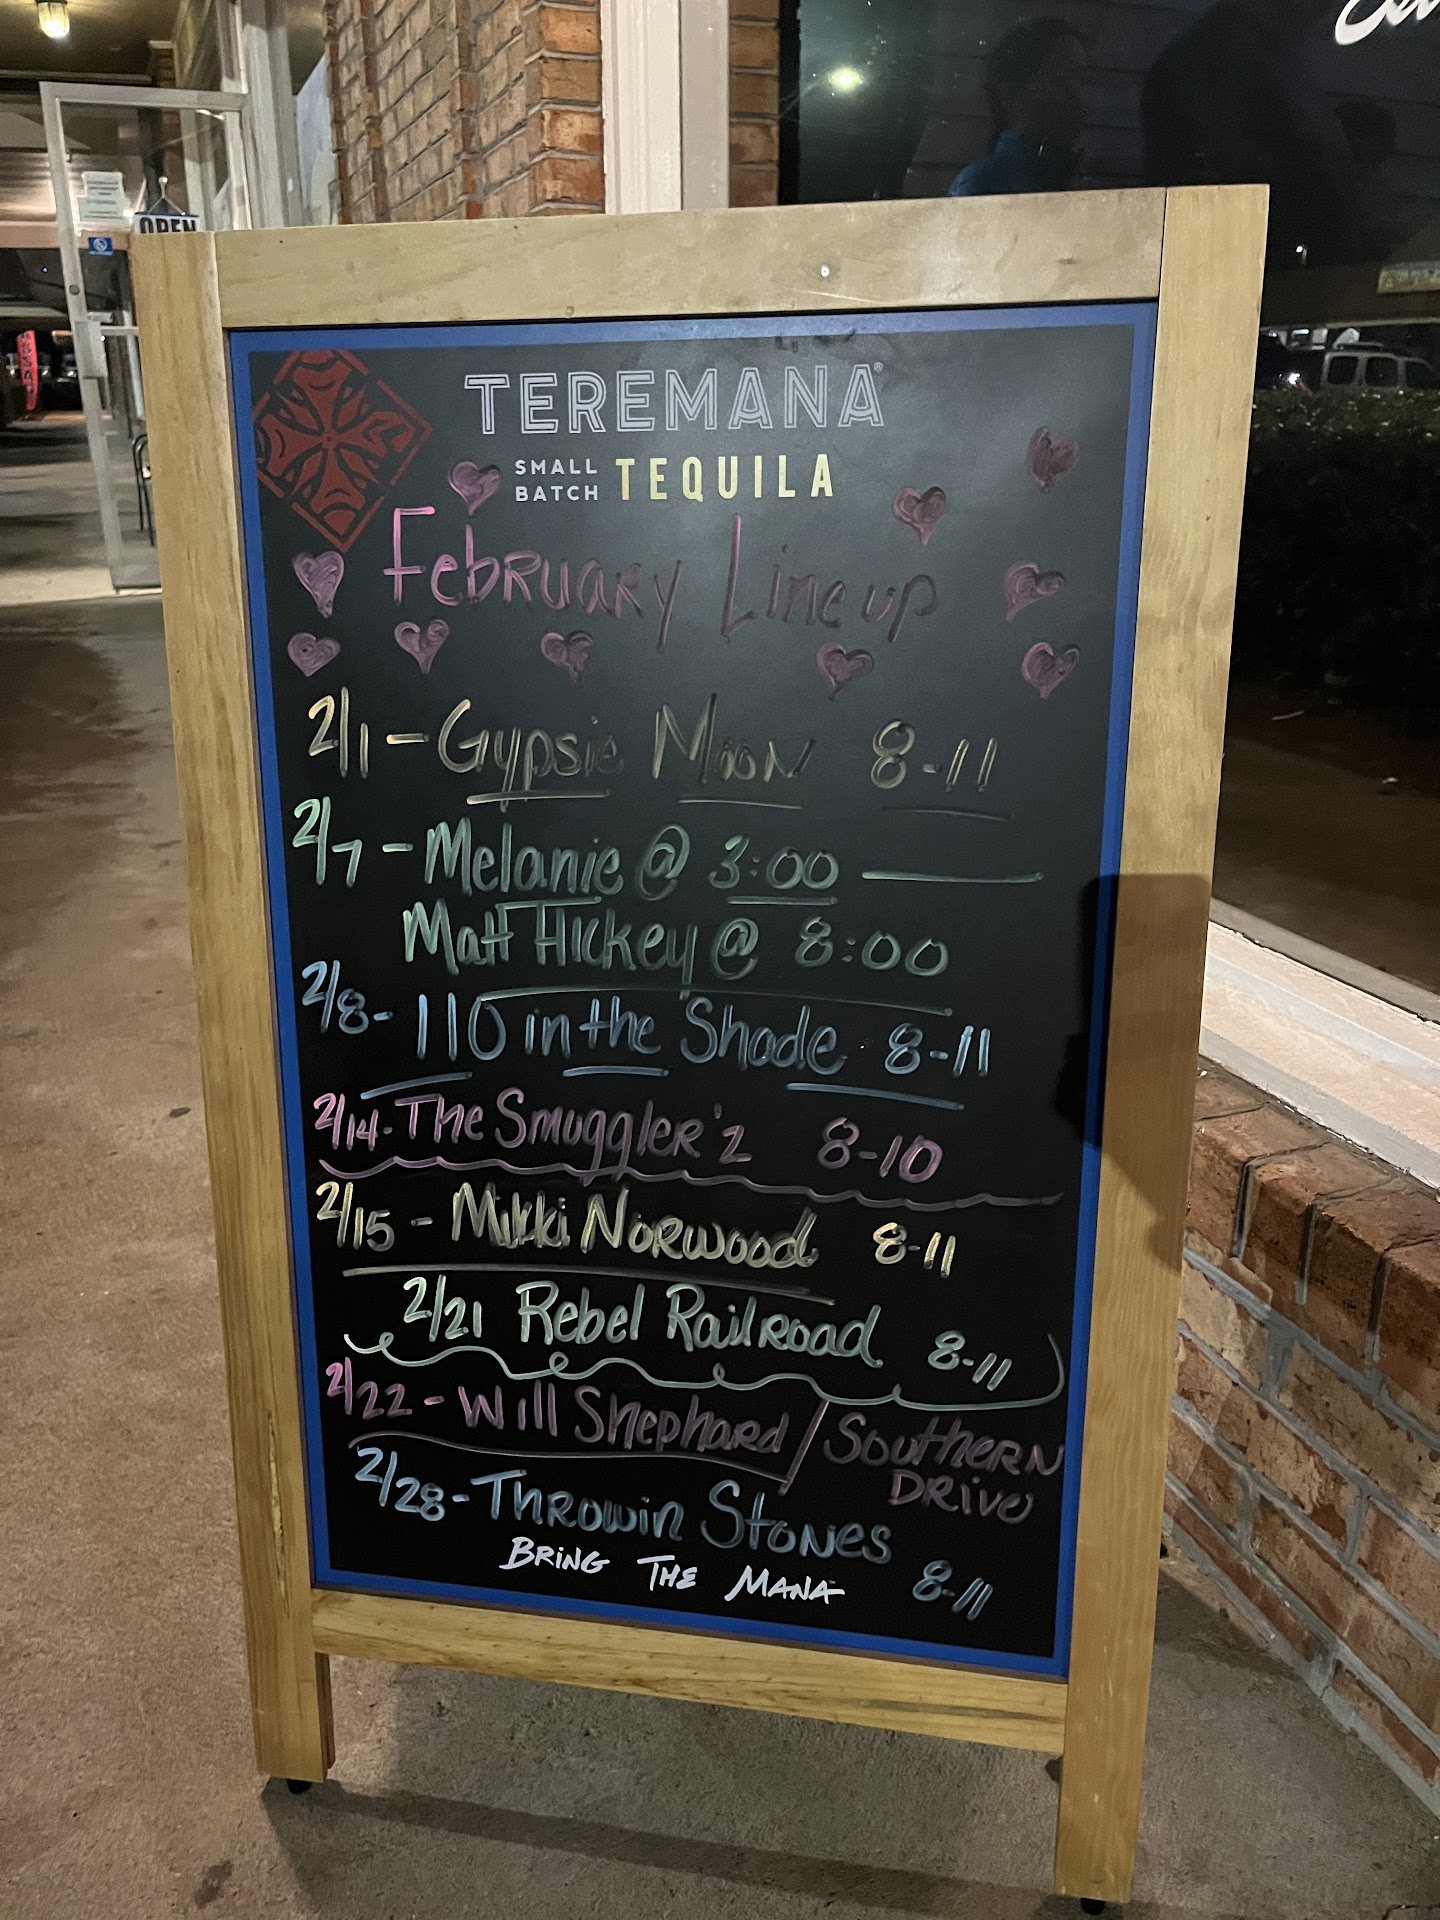 OPEN
TEREMANA®
SMALL BATCH TEQUILA
February Line up
2/1 - Gypsie Moon 8-11
2/7 - Melanie @ 3:00
Matt Hickey @ 8:00
2/8 - 110 in the Shade 8-11
2/14 - The Smuggler'z 8-10
2/15 - Mikki Norwood 8-11
2/21 Rebel Railroad 8-11
2/22 - Will Shephard / Southern
Drive
2/28 - Throwin Stones
8-11
BRING THE MANA